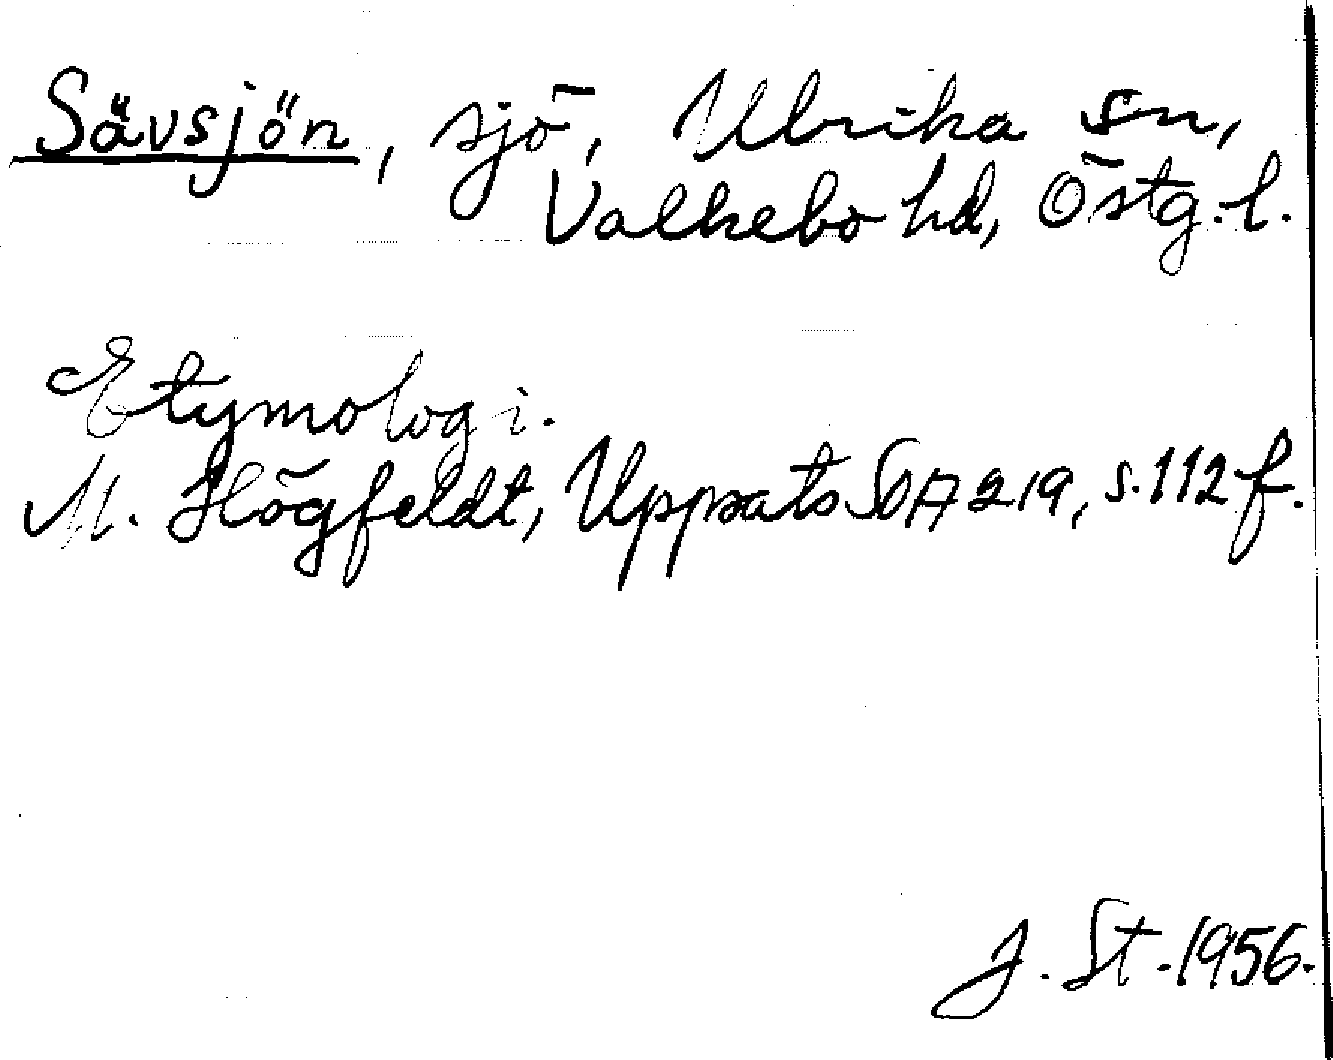 Sävsjön, sjö, Ulrika sn,
Valkebo hd, Östg. l.
Etymologi.
M. Högfeldt, Uppsats SOA 219, s. 112 f.
J. St. 1956.